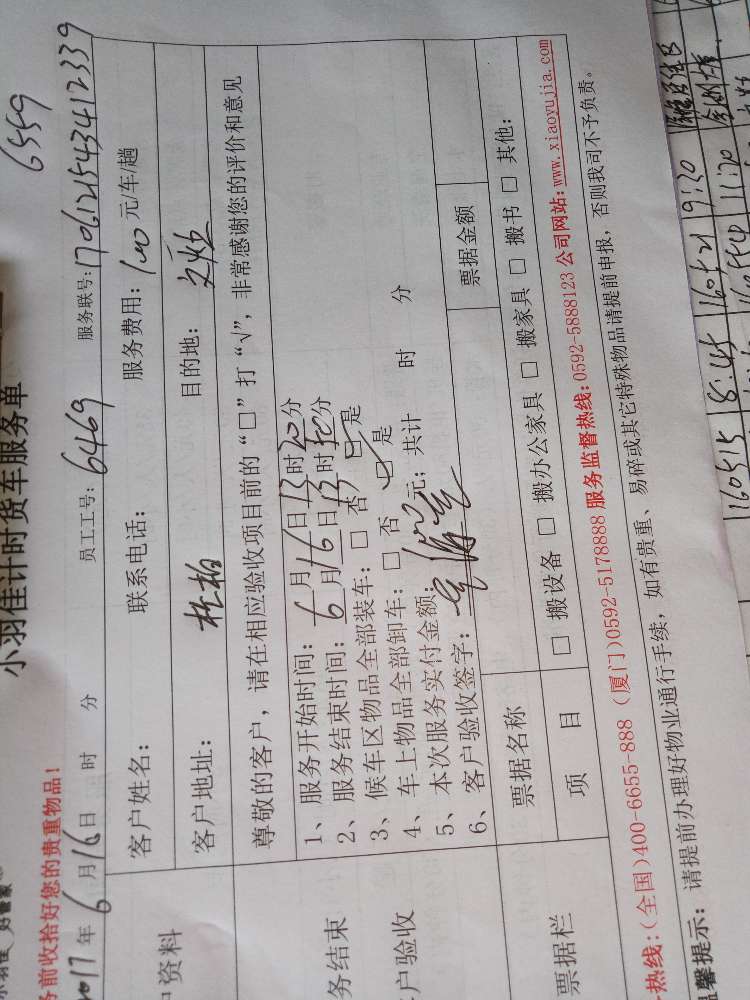 6559
小羽佳计时货车服务单
务前收拾好您的贵重物品！
2017年6月16日 时 分 员工工号：6469 服务联号：170612154341 2339
户资料
客户姓名： 联系电话： 服务费用：100元/车/趟
客户地址： 目的地：
尊敬的客户，请在相应验收项目前的“□”打“√”，非常感谢您的评价和意见
务结束
户验收
1、服务开始时间：6月16日13时20分
2、服务结束时间：6月16日13时50分
3、候车区物品全部装车：□ 否 ☑是
4、车上物品全部卸车：□ 否 ☑是
5、本次服务实付金额：100元；共计 时 分
6、客户验收签字：
票据栏
票据名称 票据金额
项 目 □ 搬设备 □ 搬办公家具 □ 搬家具 □ 搬书 □ 其他：
热线：(全国)400-6655-888 (厦门)0592-5178888 服务监督热线：0592-5888123 公司网站：www.xiaoyujia.com
温馨提示：请提前办理好物业通行手续，如有贵重、易碎或其它特殊物品请提前申报，否则我司不予负责。
160515 8:45 160521 9:20
11:20